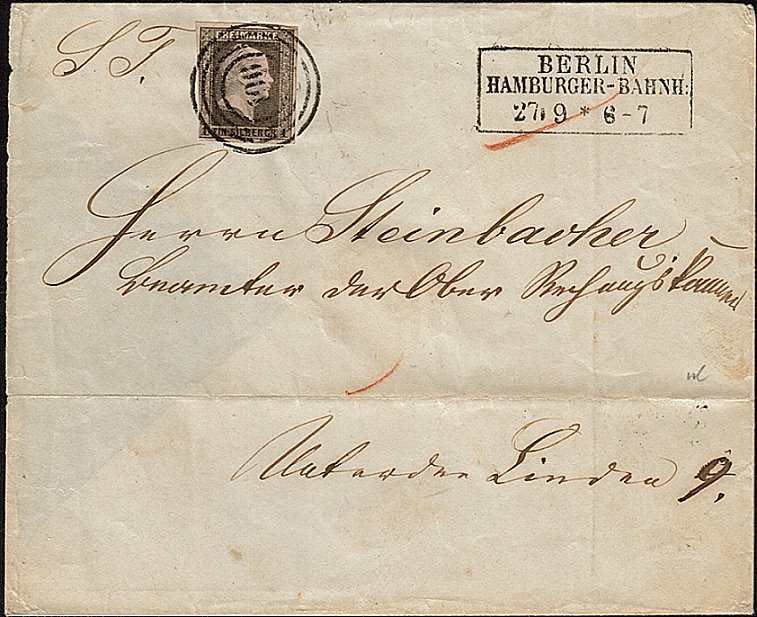 S. T.
FREIMARKE
1 EIN SILBERGR. 1
BERLIN
HAMBURGER-BAHNH:
27 9 * 6-7
Herrn Steinbacher
Beamter der Ober Rechnungskammer
Unter den Linden 9.